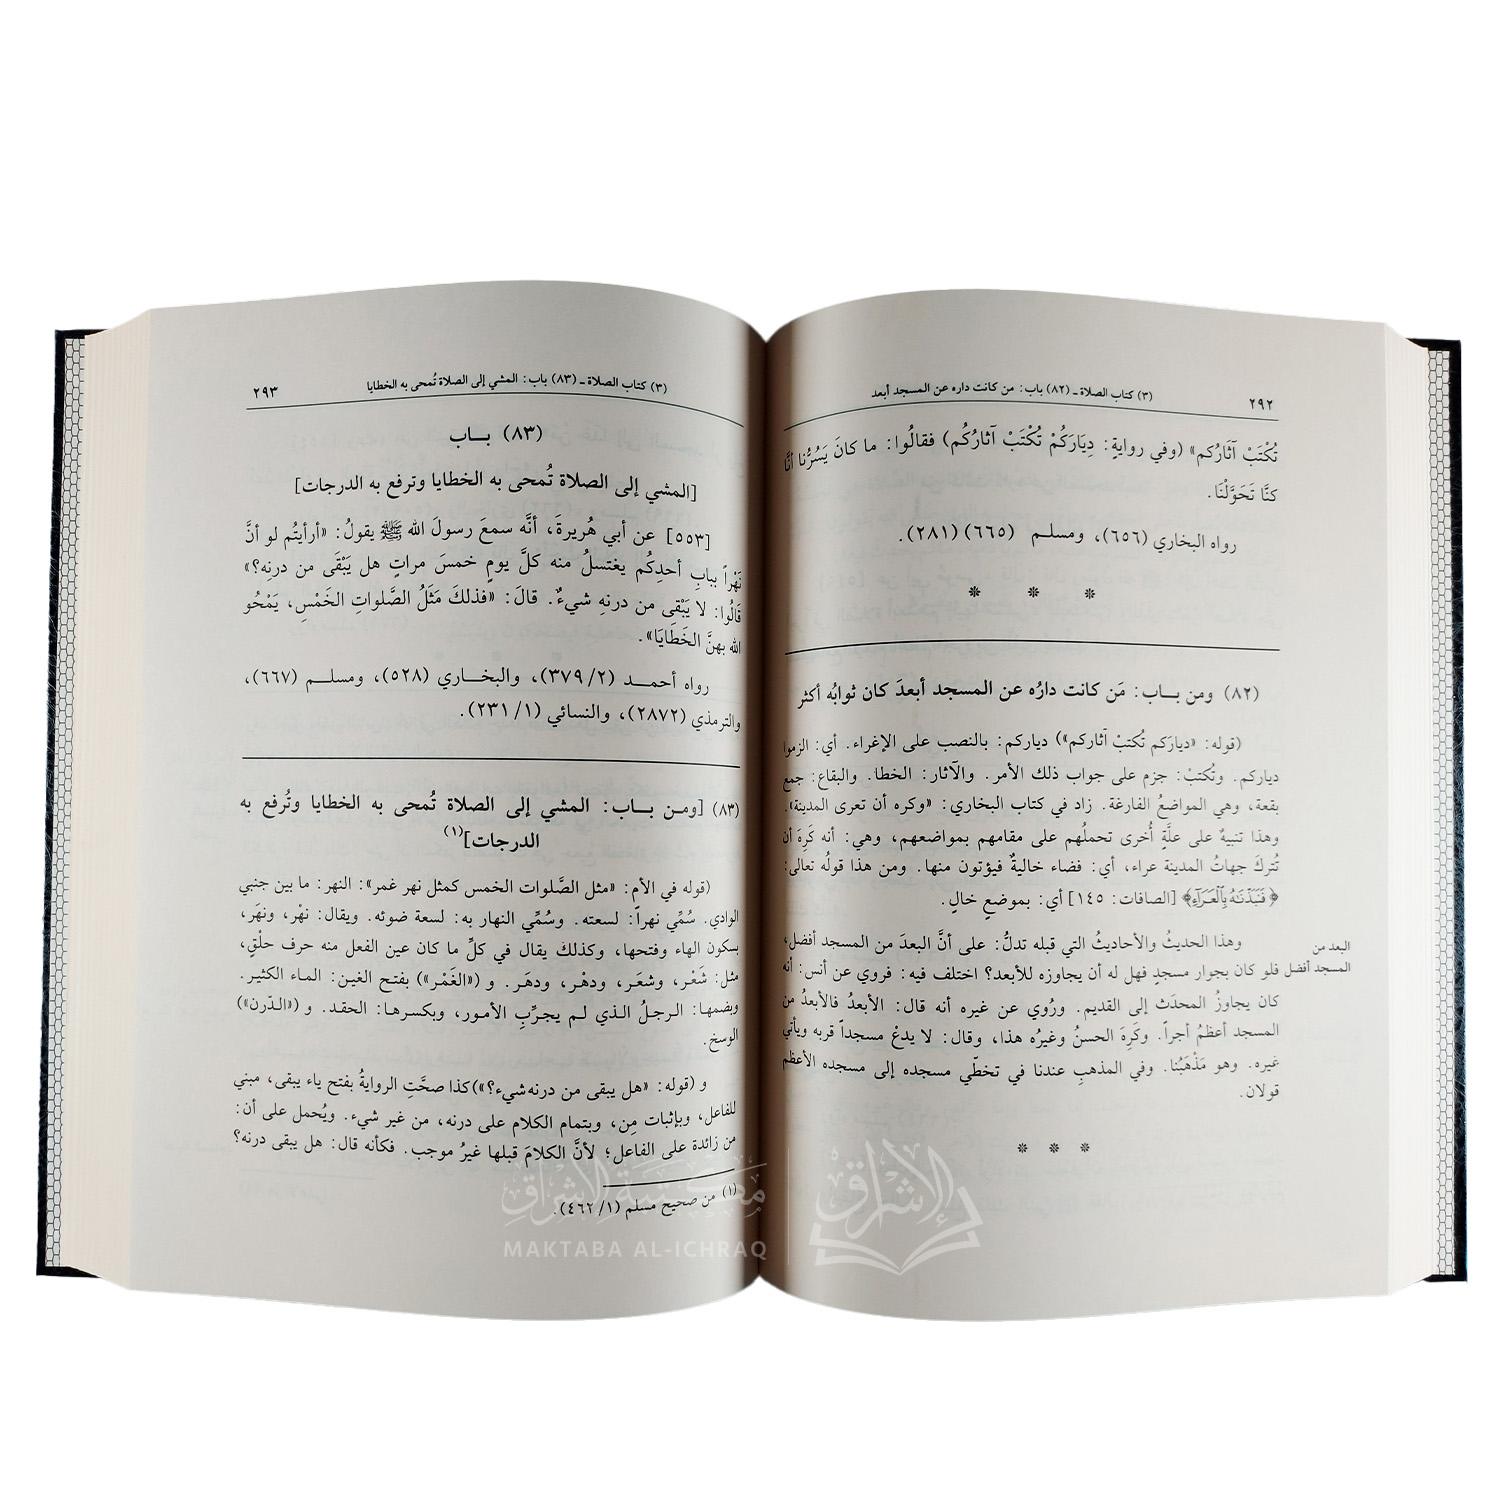 ٢٩٢
(٣) كتاب الصلاة ـ (٨٢) باب: من كانت داره عن المسجد أبعد
تُكْتَبْ آثَارُكم» (وفي روايةٍ: دِيَارَكُمْ تُكْتَبْ آثارُكُم) فقالُوا: ما كانَ يَسُرُّنا أنَّا
كنَّا تَحَوَّلْنَا.
رواه البخاري (٦٥٦)، ومسلم (٦٦٥)(٢٨١).
* * *
(٨٢) ومن بـاب: مَن كانت دارُه عن المسجد أبعدَ كان ثوابُه أكثر
(قوله: «ديارَكم تُكتبْ آثاركم») دياركم: بالنصب على الإغراء. أي: الزموا
دياركم. وتُكتبْ: جزم على جواب ذلك الأمر. والآثار: الخطا. والبقاع: جمع
بقعة، وهي المواضعُ الفارغة. زاد في كتاب البخاري: «وكره أن تعرى المدينة».
وهذا تنبيهٌ على علَّةٍ أُخرى تحملُهم على مقامهم بمواضعهم، وهي: أنه كَرِهَ أن
تُتركَ جهاتُ المدينة عراء، أي: فضاء خاليةٌ فيؤتون منها. ومن هذا قولُه تعالى:
﴿فَنَبَذْنَهُ بِالْعَرَآءِ﴾ [الصافات: ١٤٥] أي: بموضعٍ خالٍ.
البعد من
المسجد أفضل
وهذا الحديثُ والأحاديثُ التي قبله تدلُّ: على أنَّ البعدَ من المسجد أفضل،
فلو كان بجوار مسجدٍ فهل له أن يجاوزه للأبعد؟ اختلف فيه: فروي عن أنس: أنه
كان يجاوزُ المحدَث إلى القديم. ورُوي عن غيره أنه قال: الأبعدُ فالأبعدُ من
المسجد أعظمُ أجراً. وكَرِهَ الحسنُ وغيرُه هذا، وقال: لا يدعْ مسجداً قربه ويأتي
غيره. وهو مَذْهَبُنا. وفي المذهبِ عندنا في تخطّي مسجده إلى مسجده الأعظم
قولان.
* * *
(٣) كتاب الصلاة ـ (٨٣) باب: المشي إلى الصلاة تُمحى به الخطايا
٢٩٣
(٨٣) بـاب
[المشي إلى الصلاة تُمحى به الخطايا وترفع به الدرجات]
[٥٥٣] عن أبي هُريرةَ، أنَّه سمعَ رسولَ الله ﷺ يقولُ: «أرأيتُم لو أنَّ
نَهْراً ببابِ أحدِكُم يغتسلُ منه كلَّ يومٍ خمسَ مراتٍ هل يَبْقَى من درنِه؟»
قَالُوا: لا يَبْقِى من درنهِ شيءٌ. قالَ: «فذلكَ مَثَلُ الصَّلواتِ الخَمْسِ، يَمْحُو
الله بهنَّ الخَطَايَا».
رواه أحمـد (٣٧٩/٢)، والبخـاري (٥٢٨)، ومسلـم (٦٦٧)،
والترمذي (٢٨٧٢)، والنسائي (٢٣١/١).
(٨٣) [ومـن بـاب: المشي إلى الصلاة تُمحى به الخطايا وتُرفع به
الدرجات](١)
(قوله في الأم: «مثل الصَّلوات الخمس كمثل نهر غمر»: النهر: ما بين جنبي
الوادي. سُمِّي نهراً: لسعته. وسُمِّي النهار به: لسعة ضوئه. ويقال: نهْر، ونهَر،
بسكون الهاء وفتحها، وكذلك يقال في كلِّ ما كان عين الفعل منه حرف حلْقٍ،
مثل: شَعْر، وشعَر، ودهْر، ودهَر. و («الغَمْر») بفتح الغين: الماء الكثير.
وبضمها: الرجلُ الذي لم يجرِّبِ الأمور، وبكسرها: الحقد. و («الـدّرن»)
الوسخ.
و (قوله: «هل يبقى من درنه شيء؟») كذا صحَّتِ الروايةُ بفتح ياء يبقى، مبني
للفاعل، وبإثبات مِن، وبتمام الكلام على درنه، من غير شيء. ويُحمل على أن:
من زائدة على الفاعل؛ لأنَّ الكلامَ قبلها غيرُ موجب. فكأنه قال: هل يبقى درنه؟
(١) من صحيح مسلم (٤٦٢/١).
مكتبة الإشراق
MAKTABA AL-ICHRAQ
الإشراق